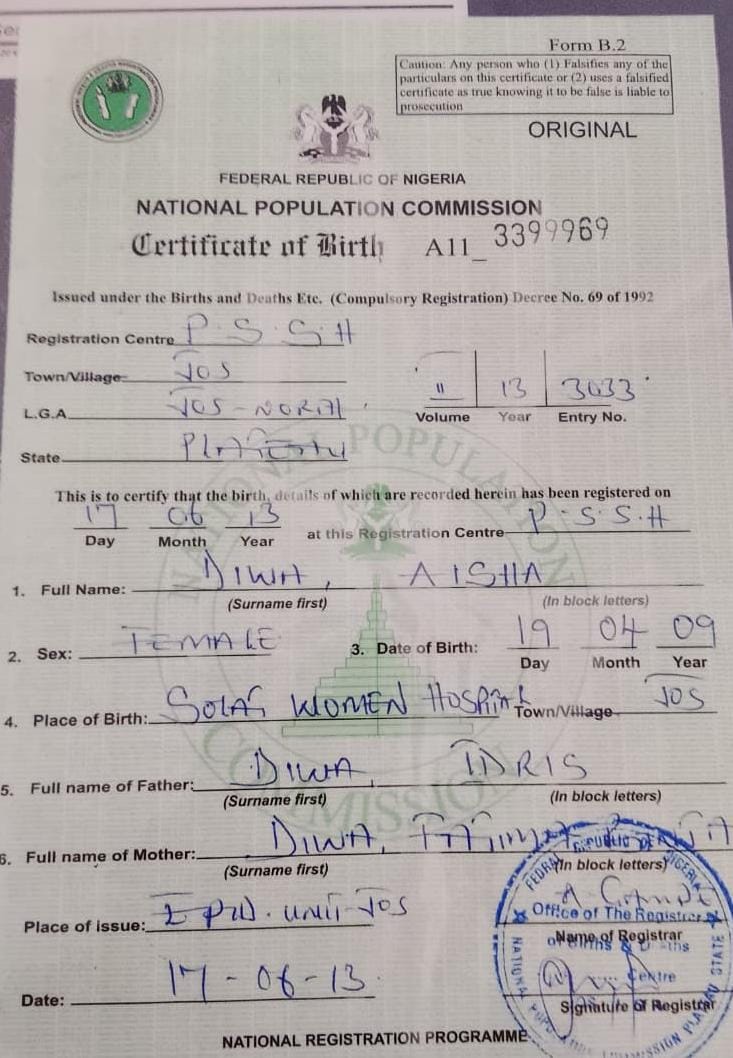 Form B.2
Caution: Any person who (1) Falsifies any of the
particulars on this certificate or (2) uses a falsified
certificate as true knowing it to be false is liable to
prosecution
ORIGINAL
FEDERAL REPUBLIC OF NIGERIA
NATIONAL POPULATION COMMISSION
Certificate of Birth A11_ 3399969
Issued under the Births and Deaths Etc. (Compulsory Registration) Decree No. 69 of 1992
Registration Centre P.S.S.H
Town/Village JOS
L.G.A. JOS-NORTH
11 13 3033
Volume Year Entry No.
State PLATEAU
This is to certify that the birth, details of which are recorded herein has been registered on
17 06 13 at this Registration Centre P.S.S.H
Day Month Year
1. Full Name: DIWA, AISHA
(Surname first) (In block letters)
2. Sex: FEMALE 3. Date of Birth: 19 04 09
Day Month Year
4. Place of Birth: SOLAS WOMEN HOSPITAL Town/Village JOS
5. Full name of Father: DIWA, IDRIS
(Surname first) (In block letters)
6. Full name of Mother: DIWA, FATIMA
(Surname first) (In block letters)
Place of issue: UNIT-JOS
Office of The Registrar
Name of Registrar
of Births & Deaths
Centre
Date: 17-06-13
Signature of Registrar
NATIONAL REGISTRATION PROGRAMME